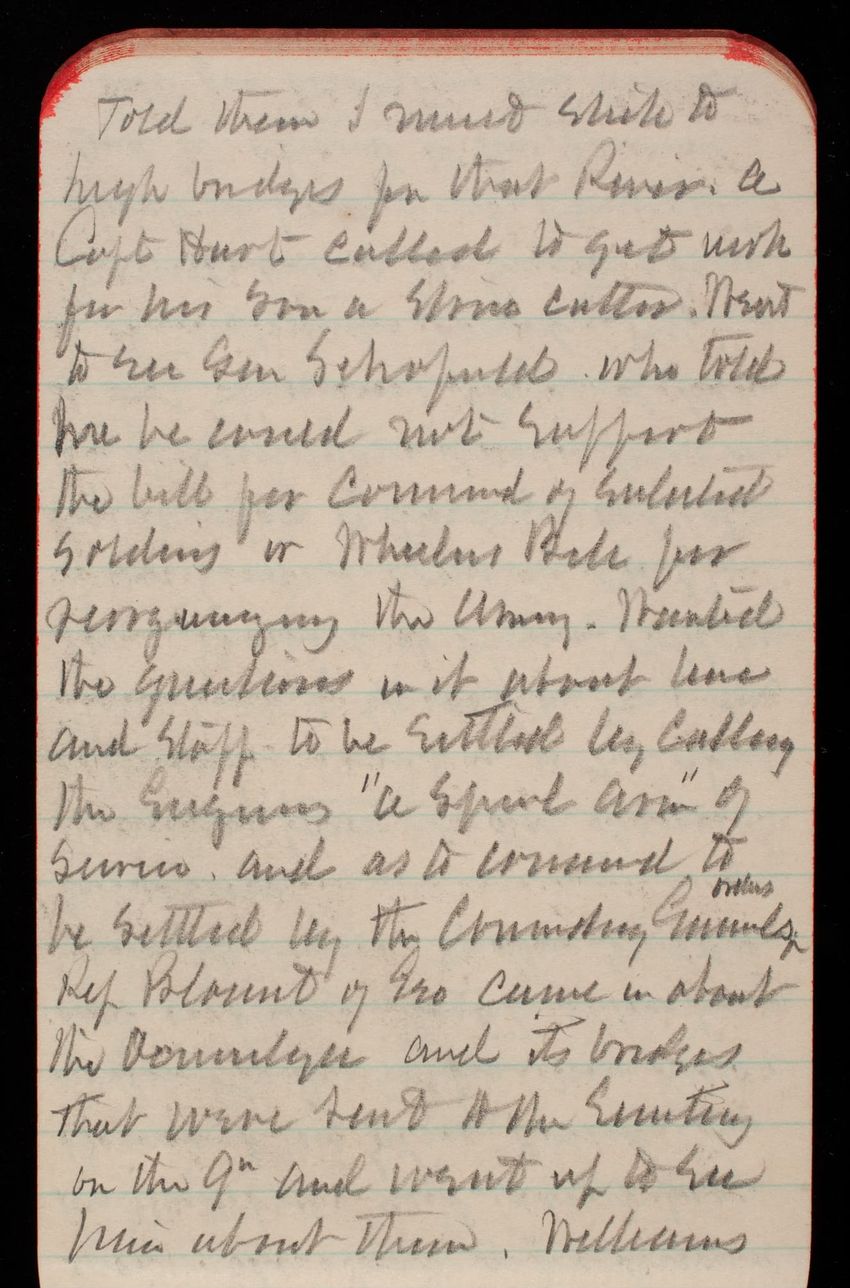 Told them I must stick to
high bridges for that River. A
Capt Hart called to get work
for his son a Stone cutter. Went
to see Gen Schofield who told
me he could not support
the bill for Command of enlisted
Soldiers or Wheelers Bill for
reorganizing the Army. Wanted
the questions in it about line
and Staff to be settled by calling
the Engineers "a Special arm" of
Service. and as to command to
be settled by the Comndng Generals orders
Rep Blount of Geo came in about
the Ocmulgee and its bridges
that were sent to the Secretary
on the 9th and went up to see
him about them. Williams